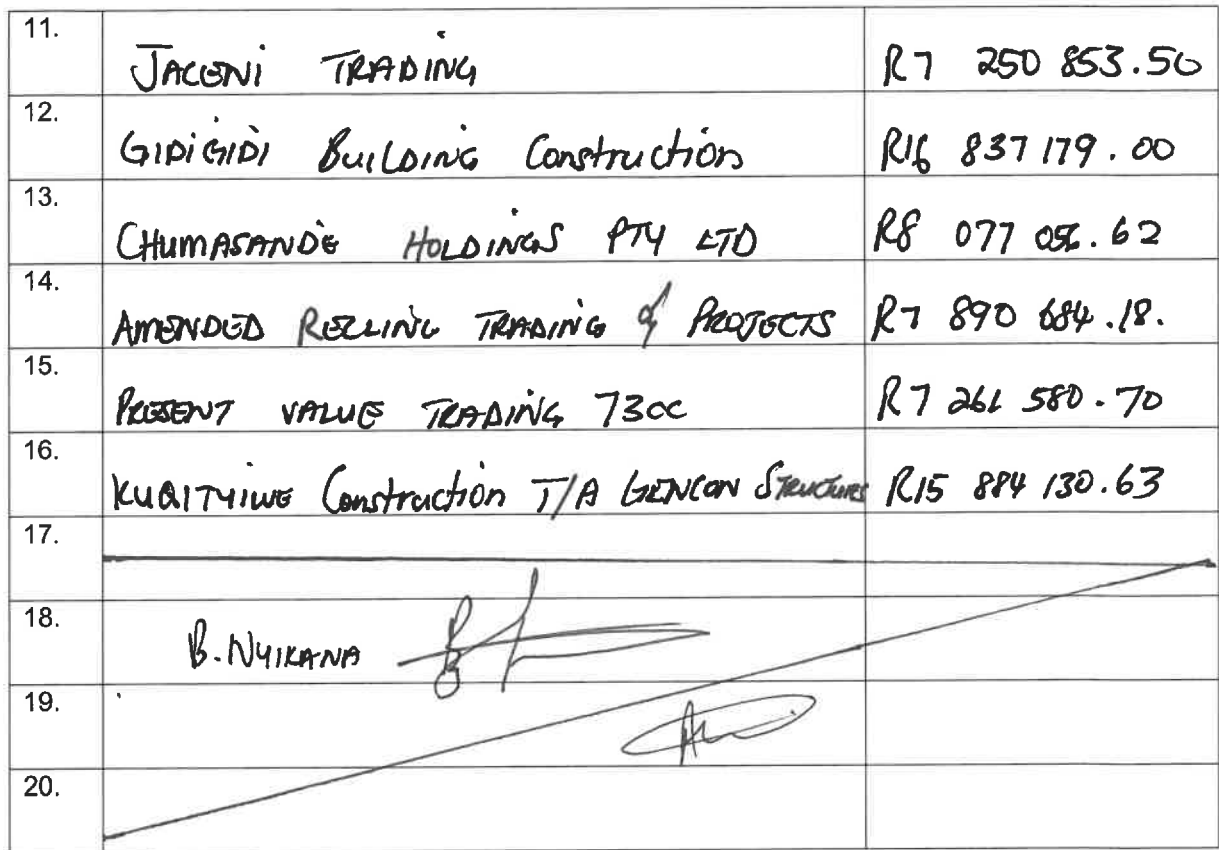 11. JACENI TRADING R7 250 853.50
12. GIDIGIDI BUILDING Construction R16 837 179.00
13. CHUMASANDE HOLDINGS PTY LTD R8 077 056.62
14. AMENDED RELLING TRADING & PROJECTS R7 890 684.18.
15. PRESENT VALUE TRADING 73CC R7 261 580.70
16. KUQITYIWE Construction T/A GENCON STRUCTURES R15 884 130.63
17.
18. B. NYIKANA
19.
20.